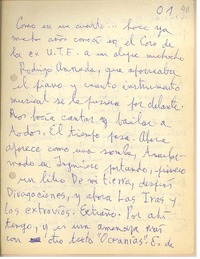 01
Como en un cuento... hace ya
mucho años conocí en el Coro de
la ex U.T.E. a un alegre muchacho
Rodrigo Ahumada, que aporreaba
el piano y cuanto instrumento
musical se le pusiera por delante.
Nos hacía cantar y bailar a
todos. El tiempo pasa. Ahora
aparece como una sombra,
en Ingeniero portando, primero
un libro De mi tierra, después
Divagaciones, y ahora Las Iras y
los extravíos. Extraño. Por ahí
tengo, y es una amenaza más
con otro texto "Oceanías". Es de